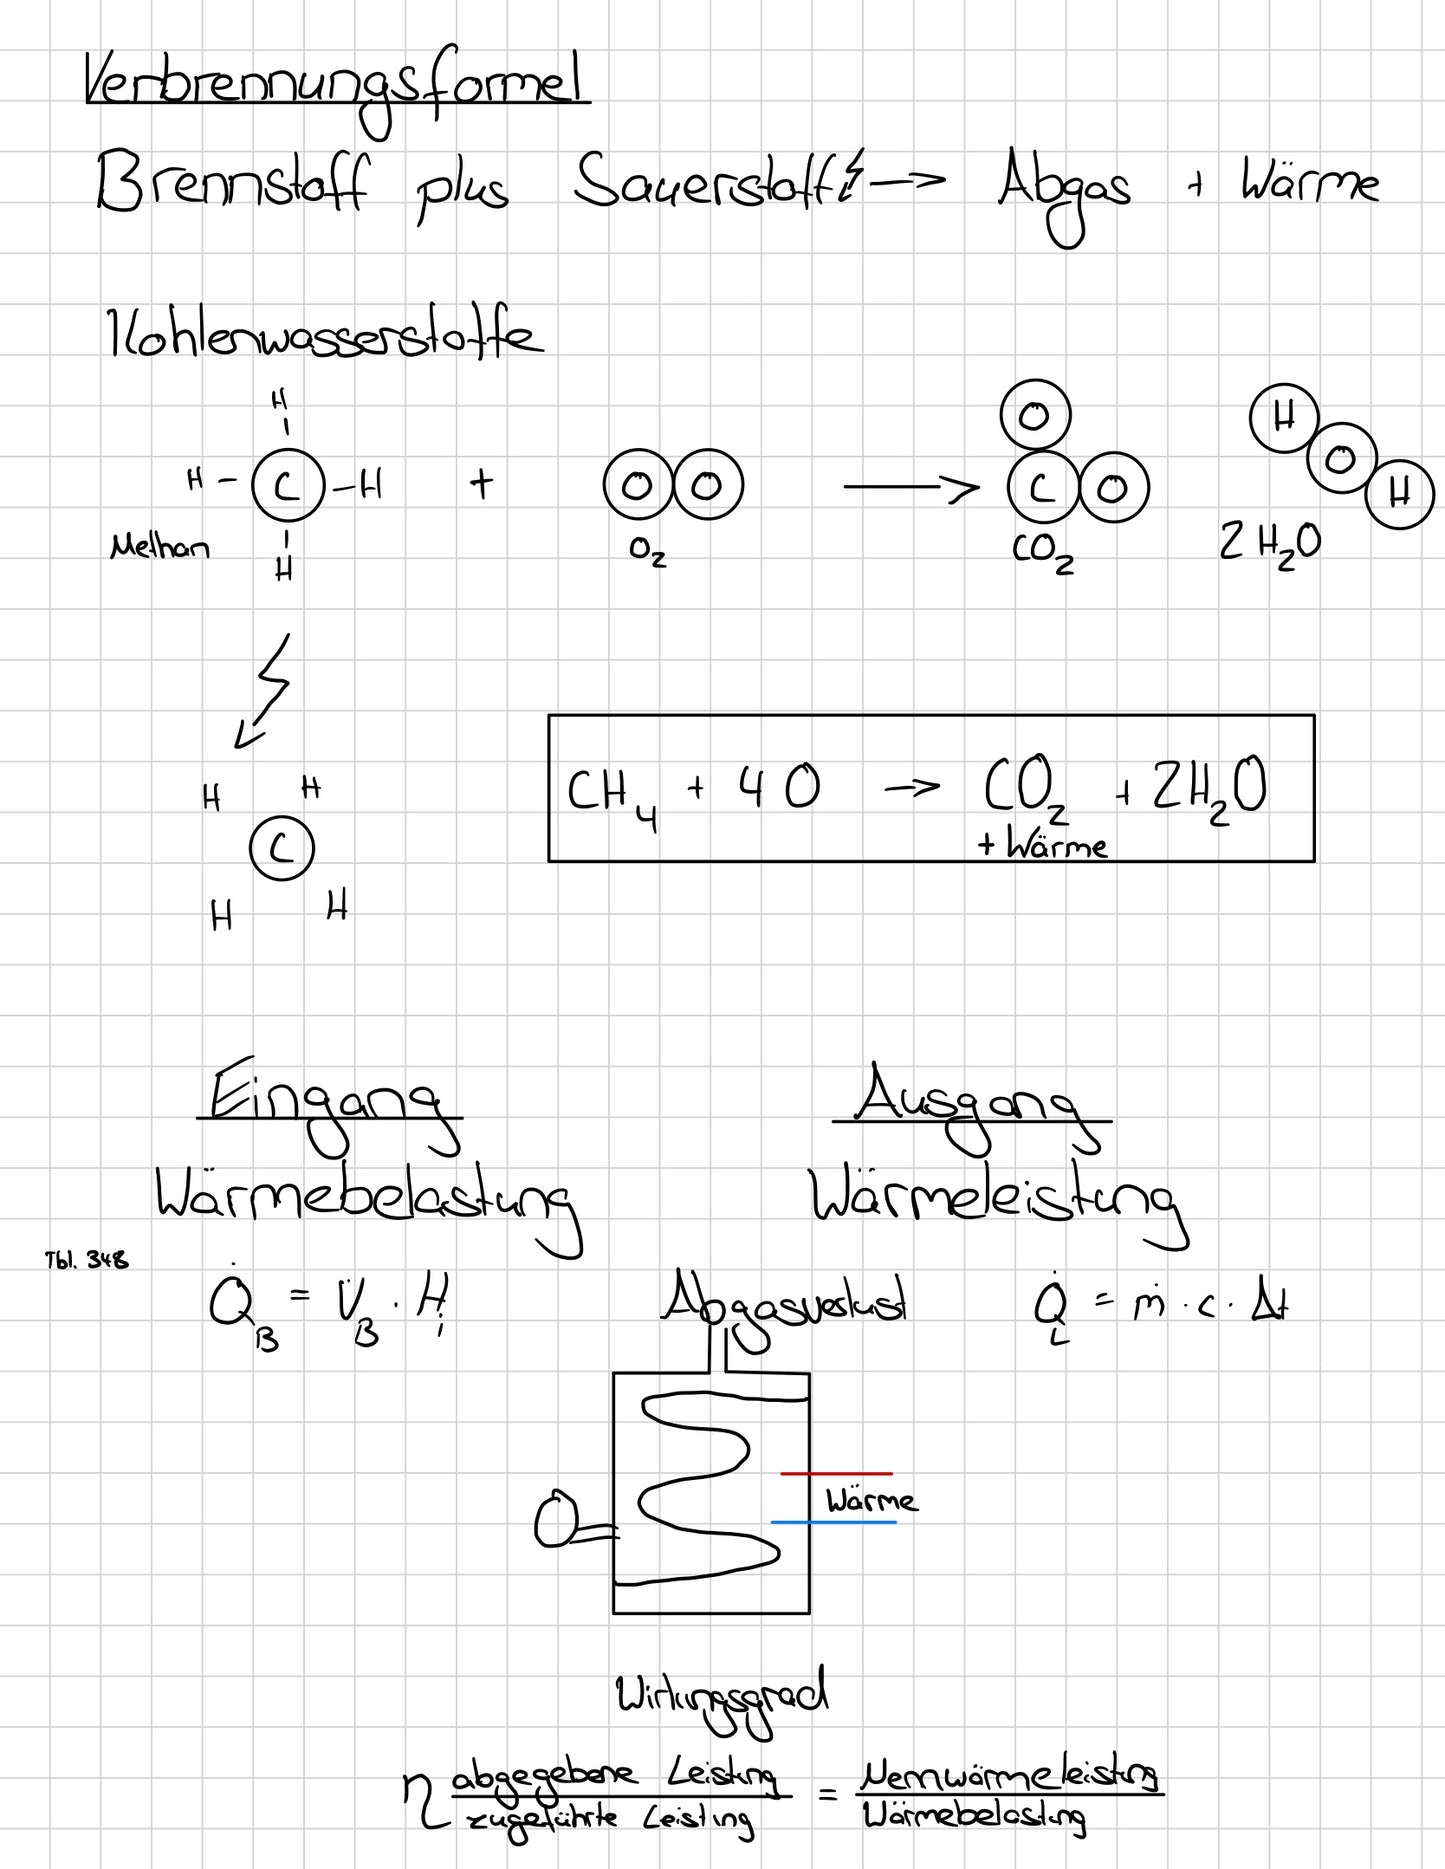 Verbrennungsformel
Brennstoff plus Sauerstoff → Abgas + Wärme
Kohlenwasserstoffe
H
H - C - H + O O → O C O H O H
H
Methan O₂ CO₂ 2 H₂O
H H
C
H H
CH₄ + 4 O → CO₂ + 2H₂O
+ Wärme
Eingang Ausgang
Wärmebelastung Wärmeleistung
Tbl. 348
Q̇_B = V̇_B · H_i Abgasverlust Q̇_L = ṁ · c · Δt
Wärme
Wirkungsgrad
η abgegebene Leistung = Nennwärmeleistung
zugeführte Leistung Wärmebelastung